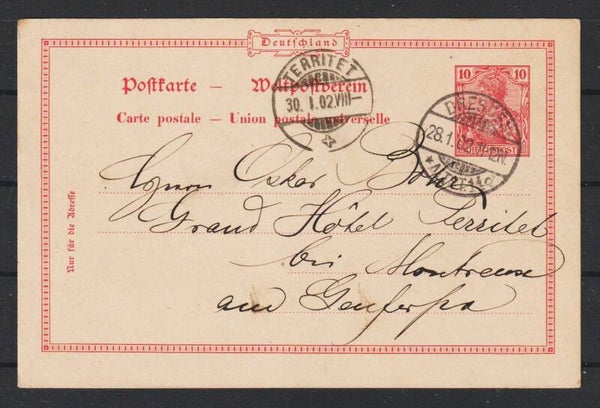 Deutschland
Postkarte – Weltpostverein
Carte postale – Union postale universelle
TERRITET
30. I. 02. VIII–
10 10
REICHSPOST
DRESDEN
28.1.02. 1-2N
Oskar
Grand Hôtel Territet
bei Montreux
am Genfersee
Nur für die Adresse